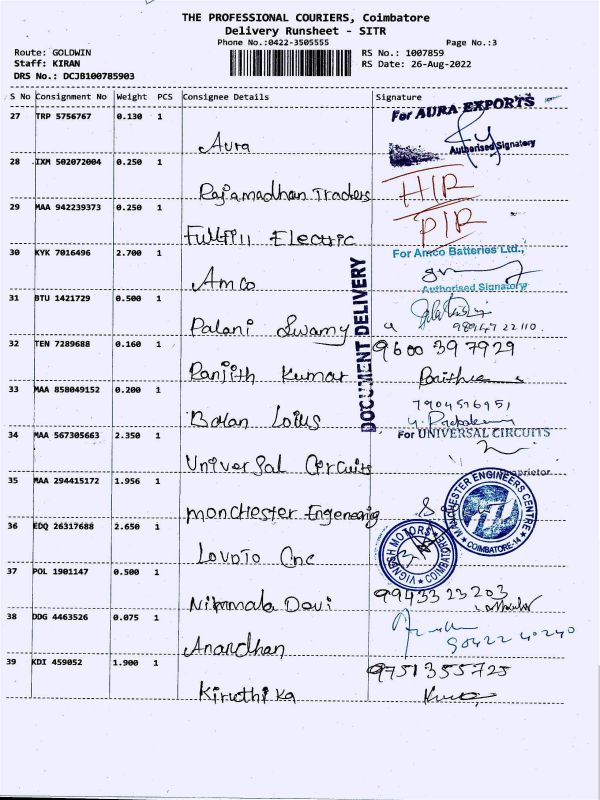 THE PROFESSIONAL COURIERS, Coimbatore
Delivery Runsheet - SITR
Phone No.:0422-3505555
Page No.:3
Route: GOLDWIN
RS No.: 1007859
Staff: KIRAN
RS Date: 26-Aug-2022
DRS No.: DCJB100785903
S No Consignment No Weight PCS Consignee Details Signature
27 TRP 5756767 0.130 1
For AURA EXPORTS
Aura
Authorised Signatory
28 IXM 502072004 0.250 1
Rajamadhan Traders
29 MAA 942239373 0.250 1
Fullfill Electric
30 KYK 7016496 2.700 1
For Amco Batteries Ltd.,
Amco
Authorised Signatory
31 BTU 1421729 0.500 1
Palani Swamy
98947 22110
DOCUMENT DELIVERY
32 TEN 7289688 0.160 1
9600 397929
Ranjith Kumar
33 MAA 858049152 0.200 1
7904516951
Balan
34 MAA 567305663 2.350 1
For UNIVERSAL CIRCUITS
Universal Circuits
35 MAA 294415172 1.956 1
Proprietor
monchester Engeneering
MANCHESTER ENGINEERS CENTRE
COIMBATORE-14
36 EDQ 26317688 2.650 1
VIGNESH MOTORS
COIMBATORE
37 POL 1901147 0.500 1
99433 23203
Nirmmala Devi
38 DDG 4463526 0.075 1
90422 40240
Anandhan
39 KDI 459052 1.900 1
9751355725
Kiruthika